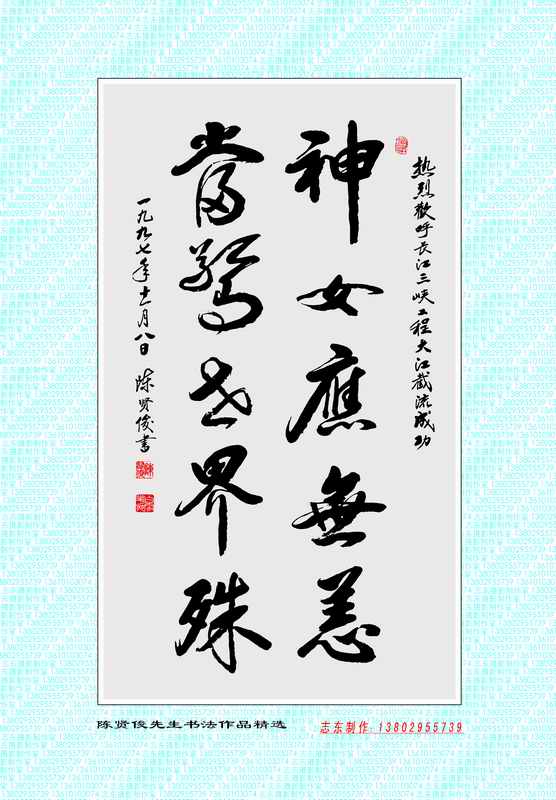 热烈歡呼长江三峡工程大江截流成功
神女應無恙
當驚世界殊
一九九七年十一月八日 陈贤俊书
陈贤俊先生书法作品精选
志东制作:13802955739